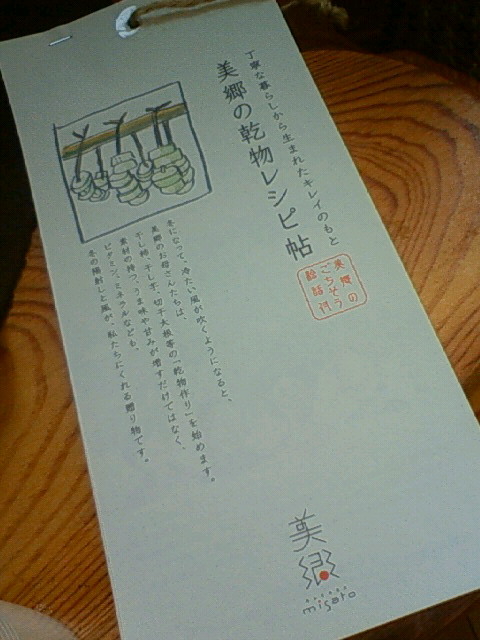 丁寧な暮らしから生まれたキレイのもと
美郷の乾物レシピ帖
美郷の
ごちそう
冬になって、冷たい風が吹くようになると、
美郷のお母さんたちは、
干し柿、干し芋、切干大根等の「乾物作り」を始めます。
素材の持つ、うま味や甘みが増すだけではなく、
ビタミン、ミネラルなども。
冬の陽射しと風が、私たちにくれる贈り物です。
美郷
misato